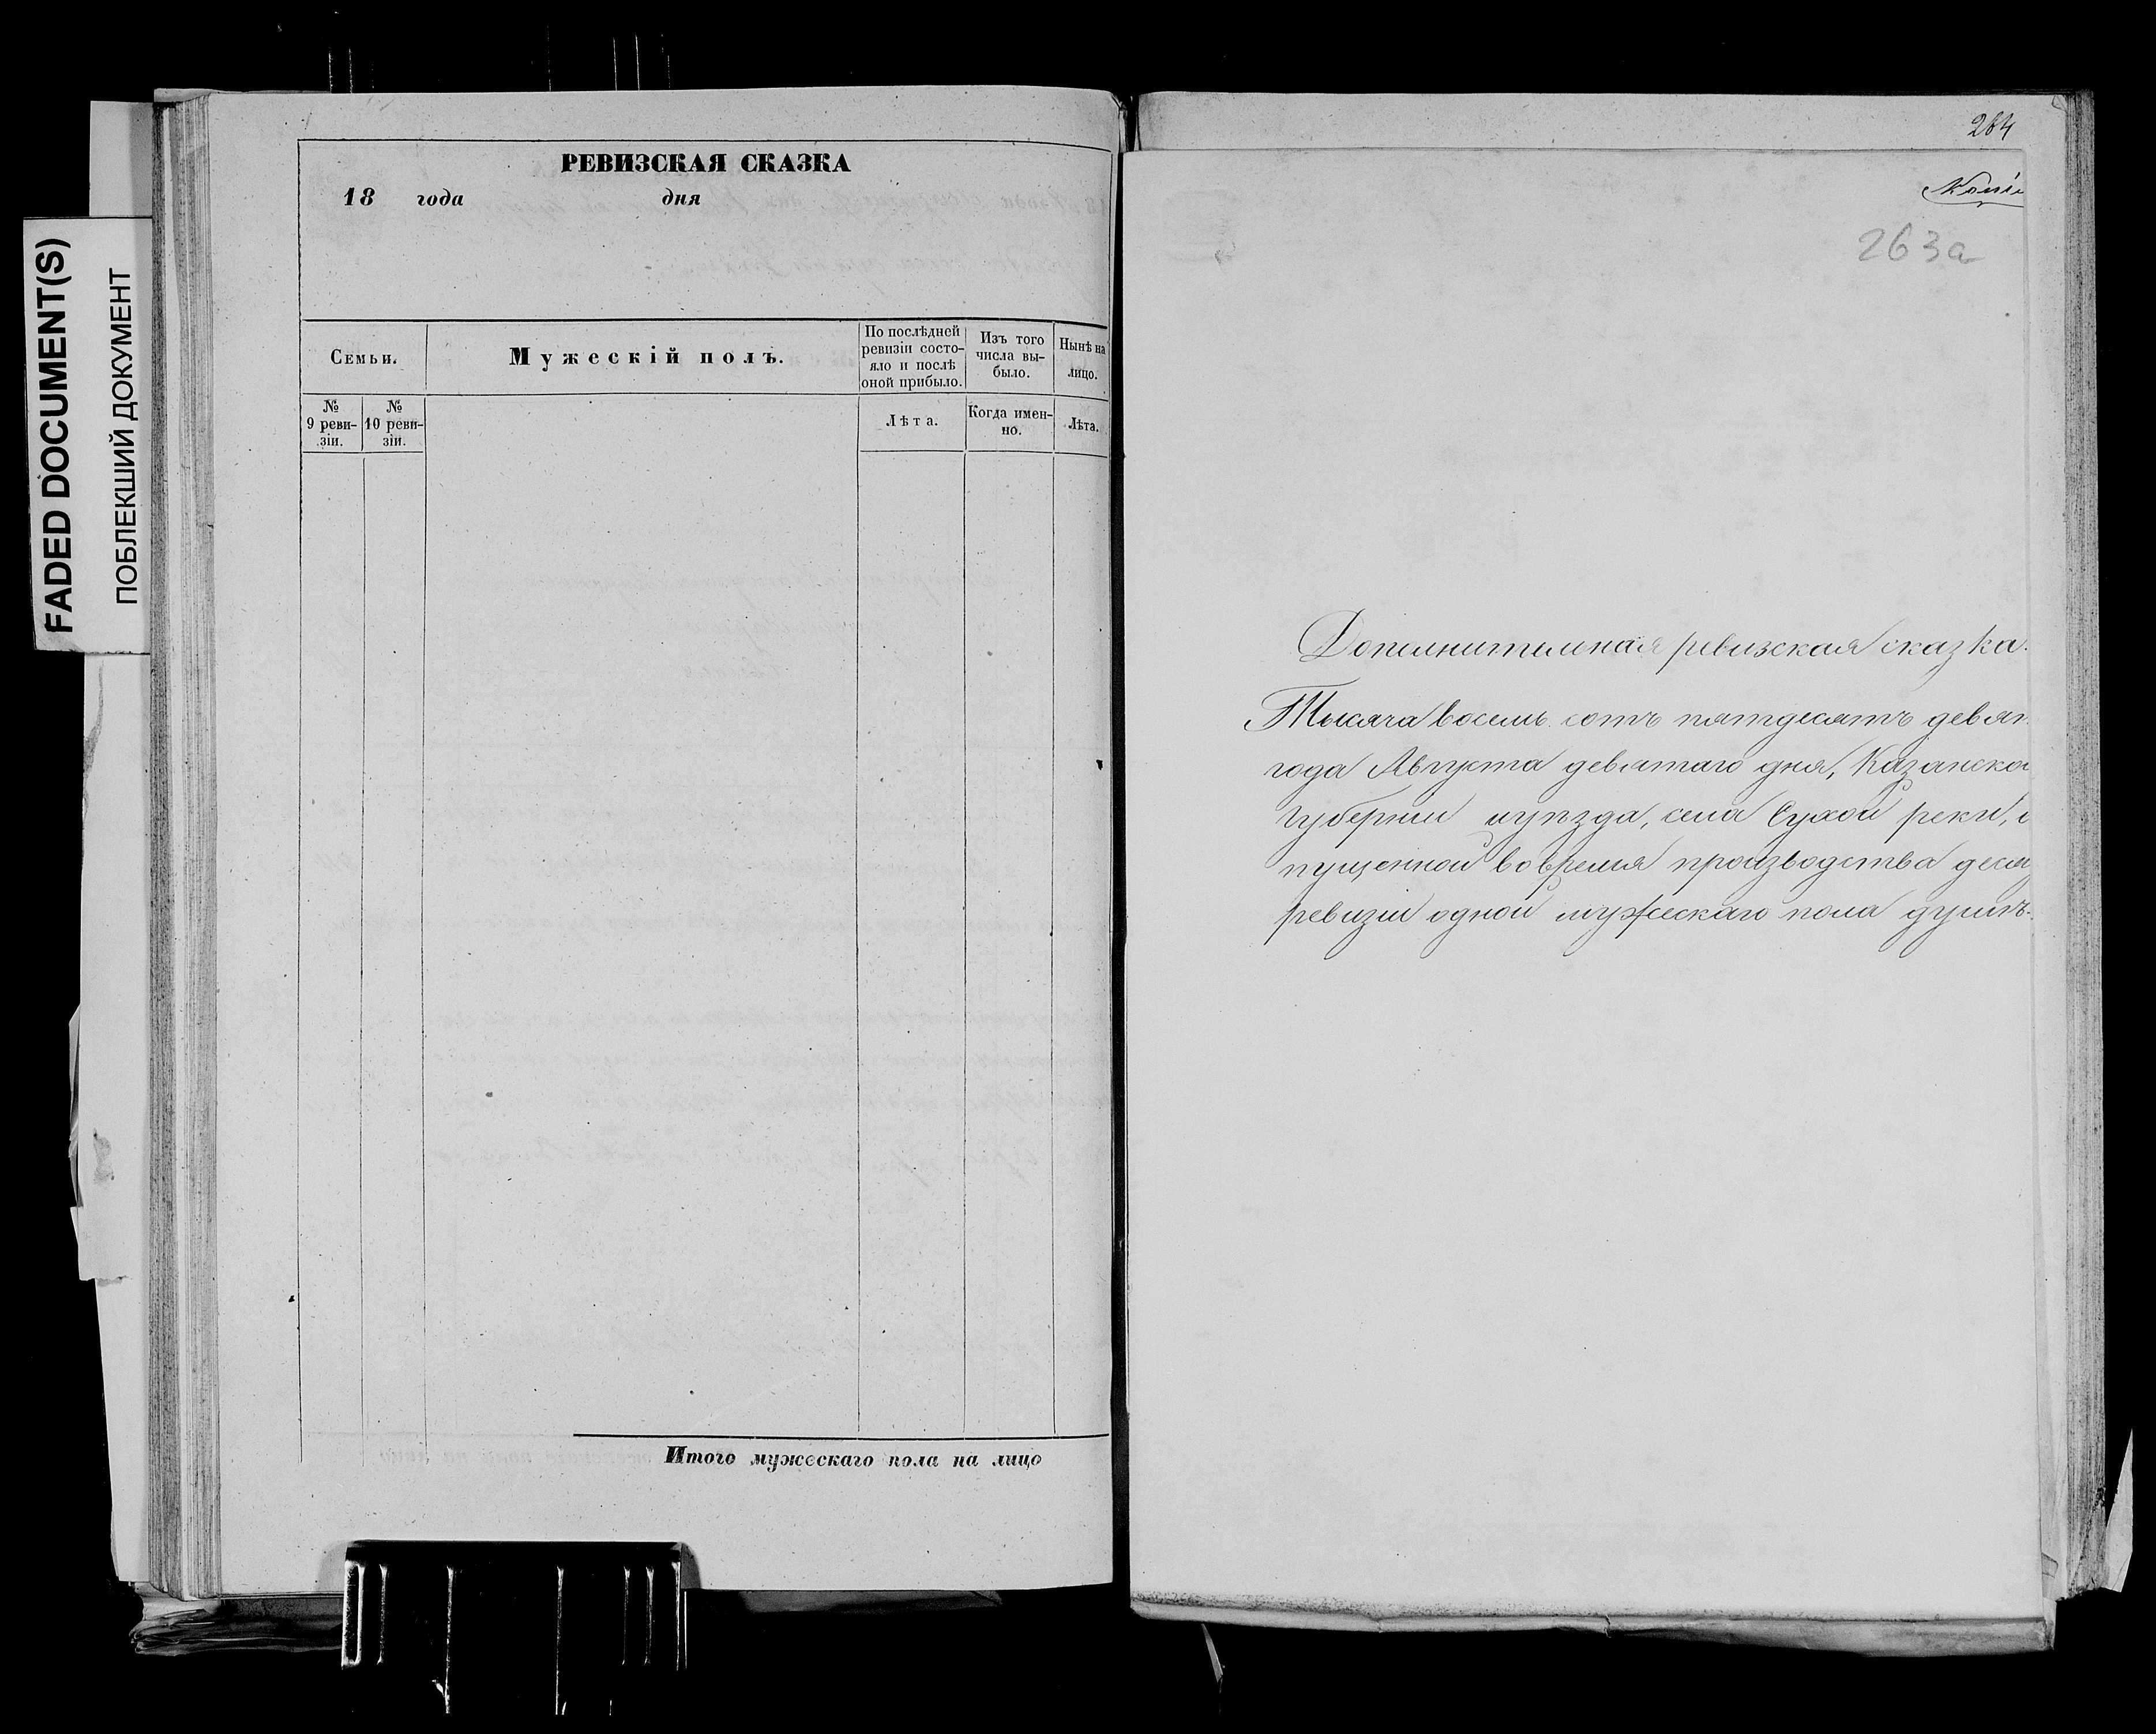 FADED DOCUMENT(S)
ПОБЛЕКШИЙ ДОКУМЕНТ
РЕВИЗСКАЯ СКАЗКА
18 года дня
Семьи.
Мужескій полъ.
По послѣдней
ревизіи состо-
яло и послѣ
оной прибыло.
Изъ того
числа вы-
было.
Нынѣ на
лицо.
№
9 реви-
зіи.
№
10 реви-
зіи.
Лѣта.
Когда имен-
но.
Лѣта.
Итого мужескаго пола на лицо
264
Копі
263а
Дополнительная ревизская сказка.
Тысяча восемь сотъ пятдесятъ девят
года Августа девятаго дня, Казанско
Губерніи и уѣзда, села Сухой реки,
пущенной во время производства деся
ревизіи одной мужескаго пола душѣ.